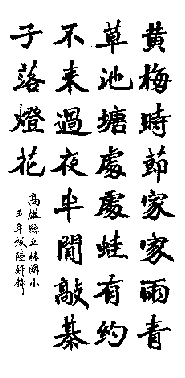 黃梅時節家家雨青
草池塘處處蛙有約
不來過夜半閒敲棊
子落燈花
高雄縣立林園小
五年級